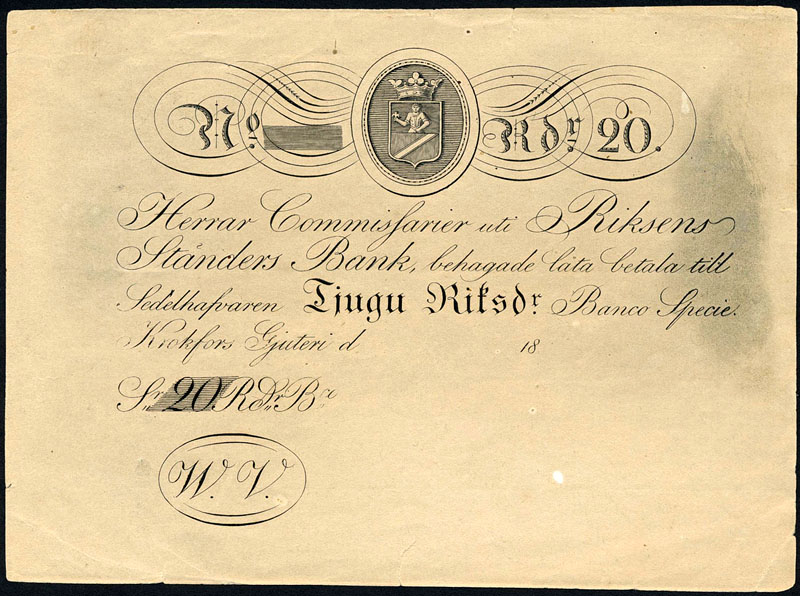 No. Rdr. 20.
Herrar Commissarier uti Riksens
Ständers Bank, behagade låta betala till
Sedelhafvaren Tjugu Riksdr. Banco Specie.
Krokfors Gjuteri d 18
Sr 20. RDr. Bco
W. V.